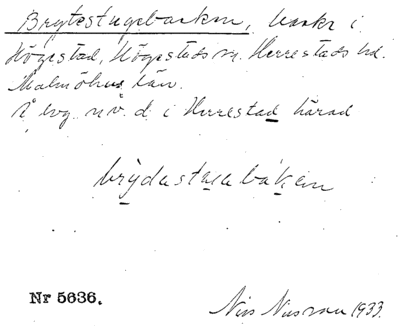 Brytestugebacken, backe i
Högestad, Högestads sn. Herrestads hd.
Malmöhus län.
Å bvg. n.v. d. i Herrestad härad
brỳdastuabákan
Nr 5636.
Nils Nilsson 1933.